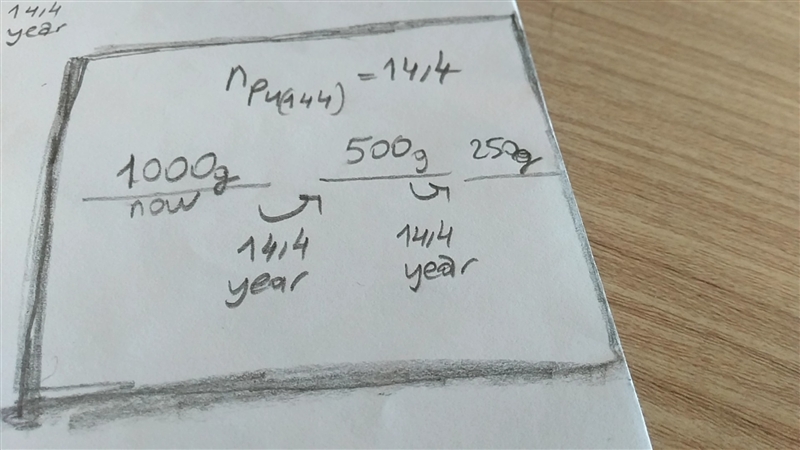 14,4
year
n Pu(144) = 14,4
1000g 500g 250g
now
14,4 14,4
year year